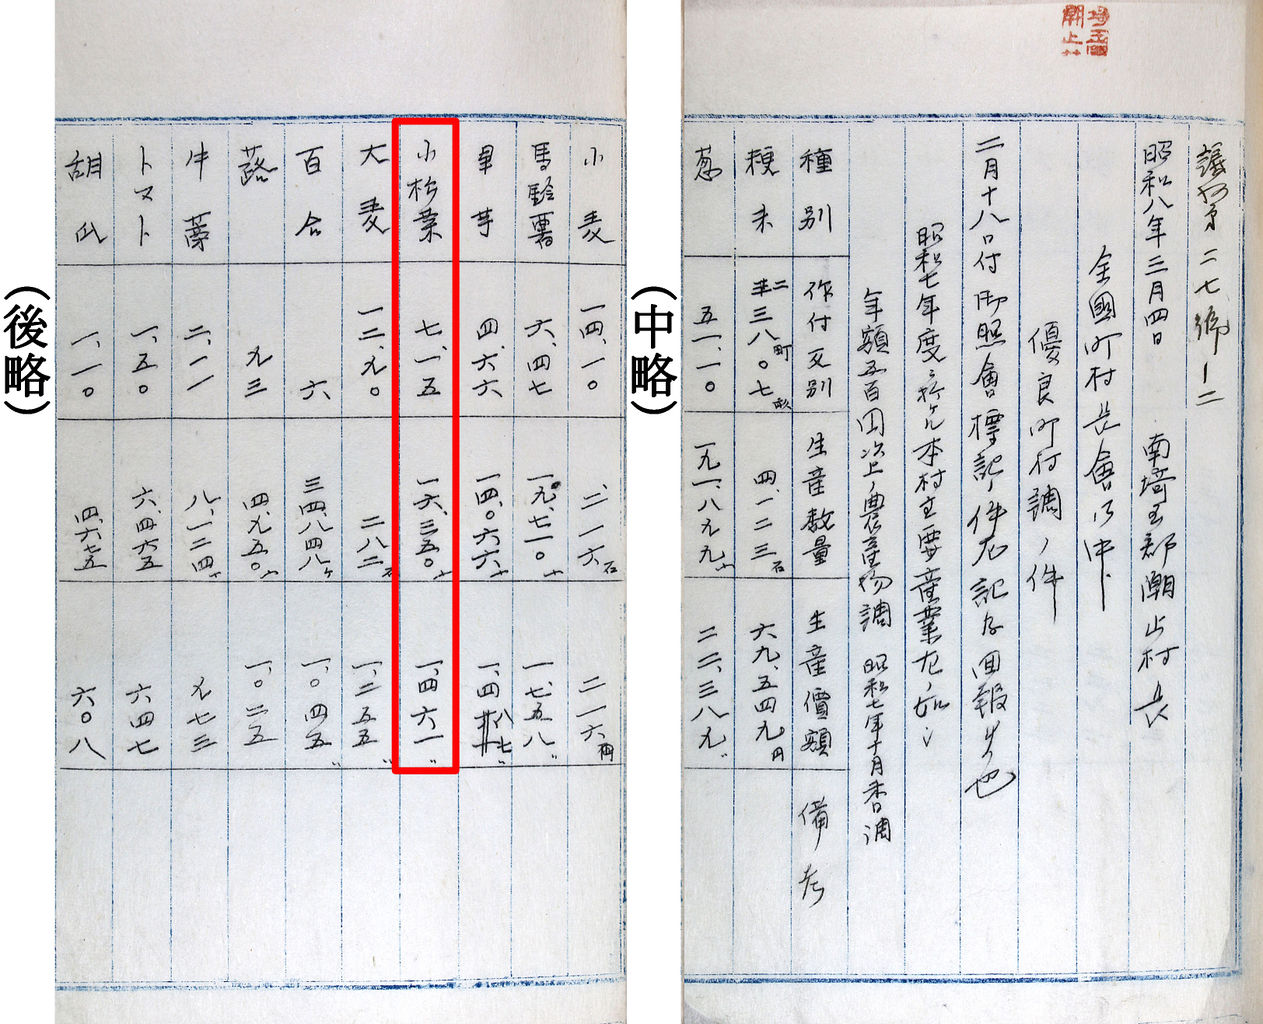 埼玉國
潮止村
昭和八年三月四日 南埼玉郡潮止村長
全國町村長會 御中
優良町村調ノ件
二月十八日付御照會標記ノ件左記ノ回報候也
昭和七年度ニ於ケル本村主要産業左ノ如シ
年額五百圓以上ノ農産物調 昭和七年十月 調
種別 作付反別 生産数量 生産價額 備考
粳米 二三八町〇七畝 四、一二三石 六九、五四九円
葱 五一、一〇 一九一、八九九〃 二二、三八九〃
(中略)
小麦 一四、一〇 二一六石 二一六円
馬鈴薯 六、四七 一九、七一〇〃 一、七五八〃
里芋 四、六六 一四、〇六六〃
小松菜 七、一五 一六、三五〇〃 一、四六一〃
大麦 一二、九〇 二八二石 一、二五五〃
百合 六 三四、八四八ケ 一、〇四五〃
蕗 九三 四、九五〇〃 一、〇二五
牛蒡 二、一一 八、一二四〃 九七三
トマト 一、五〇 六、四六五 六四七
胡瓜 一、一〇 四、六七五 六〇八
(後略)